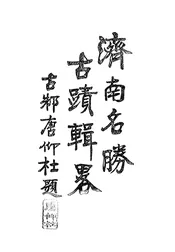 濟南名勝
古蹟輯畧
古邾唐仰杜題